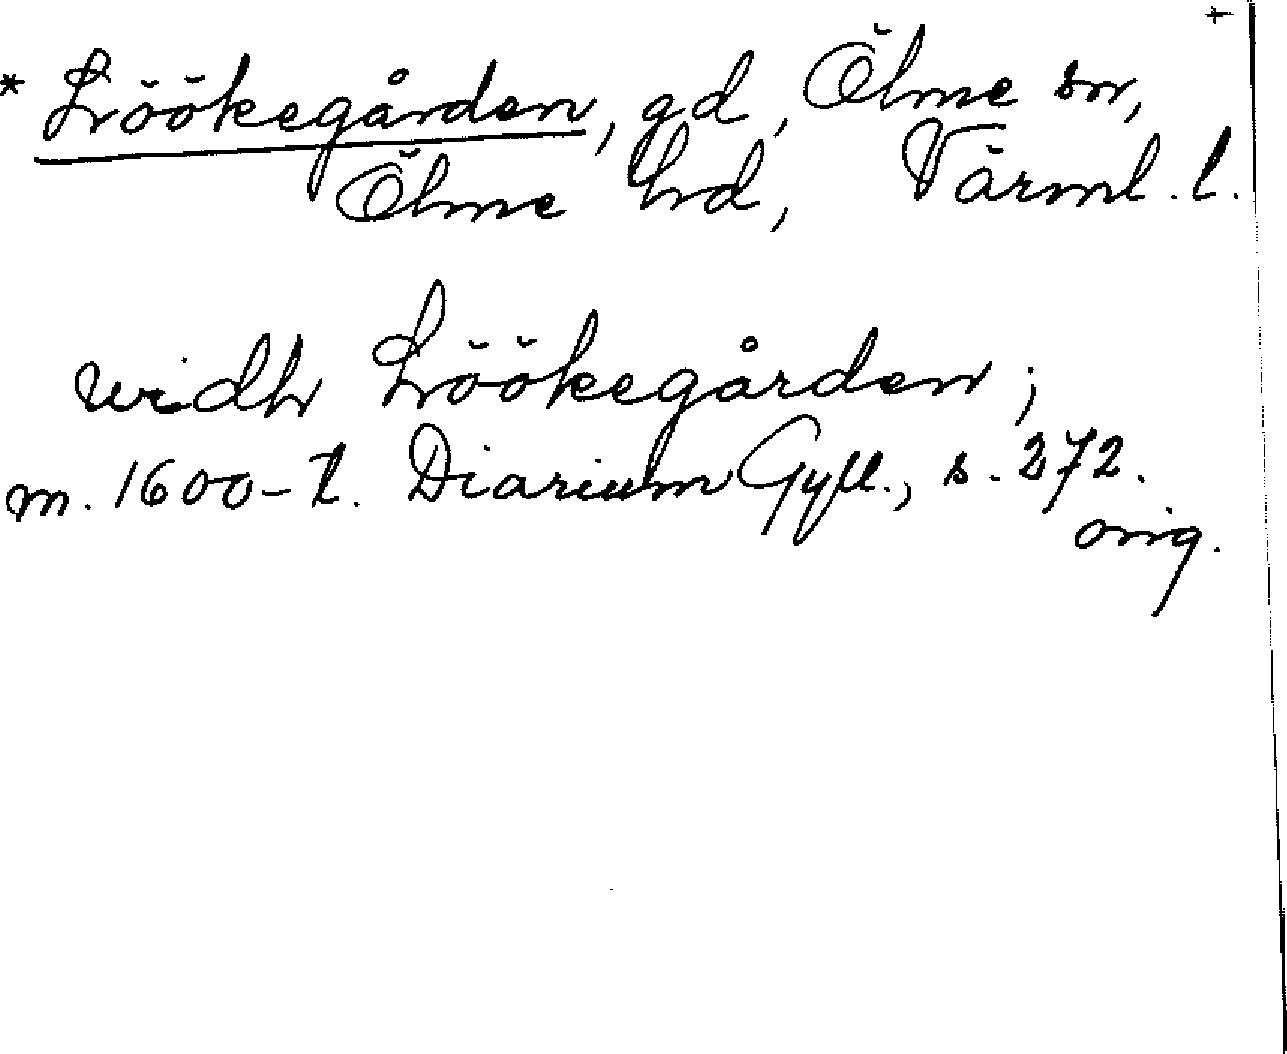 +
* Löökegården, gd, Ölme sn,
Ölme hd, Värml. l.
widh Löökegården;
m. 1600-t. Diarium Gyll., s. 272.
orig.